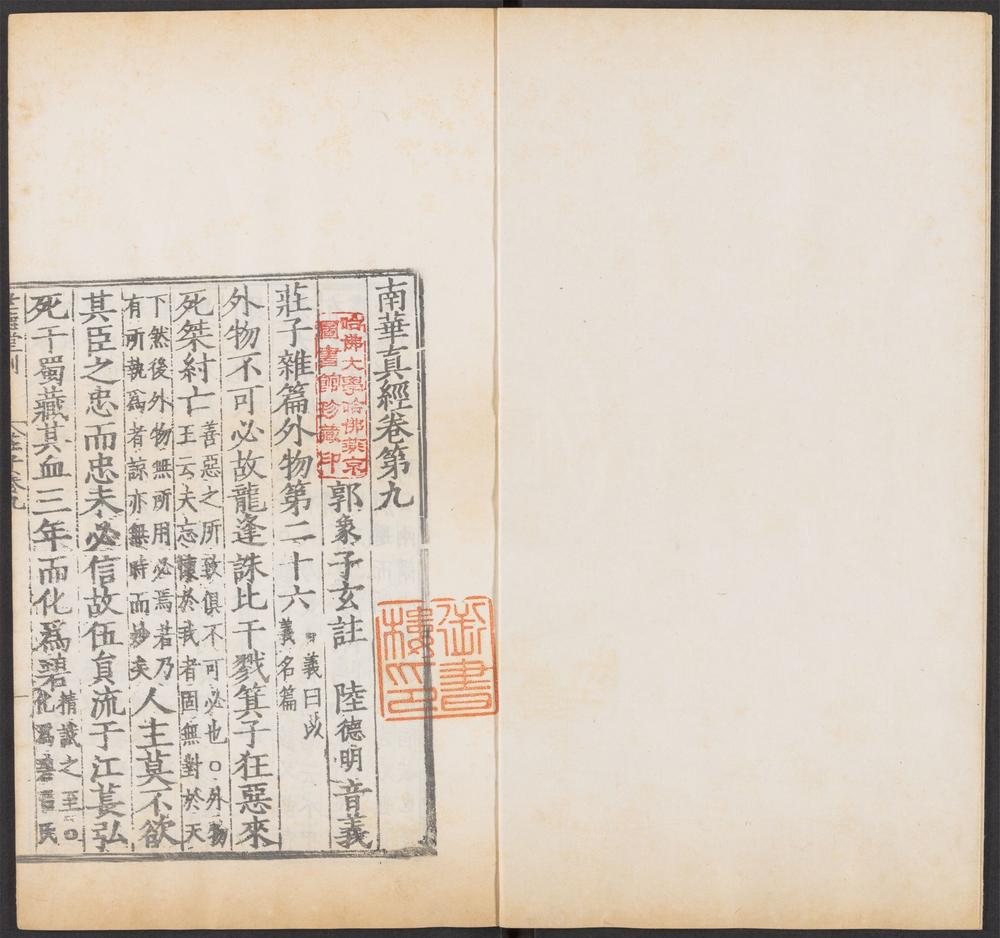 南華真經卷第九
郭象子玄註 陸德明音義
莊子雜篇外物第二十六
義曰以
義名篇
外物不可必故龍逢誅比干戮箕子狂惡來
死桀紂亡
善惡之所致俱不可必也○外物
王云夫忘懷於我者固無對於天
下然後外物無所用必焉若乃
有所執爲者諒亦無時而妙矣
人主莫不欲
其臣之忠而忠未必信故伍員流于江萇弘
死于蜀藏其血三年而化爲碧
精誠之至○
化爲碧呂氏
哈佛大學哈佛燕京
圖書館珍藏印
御書
樓印